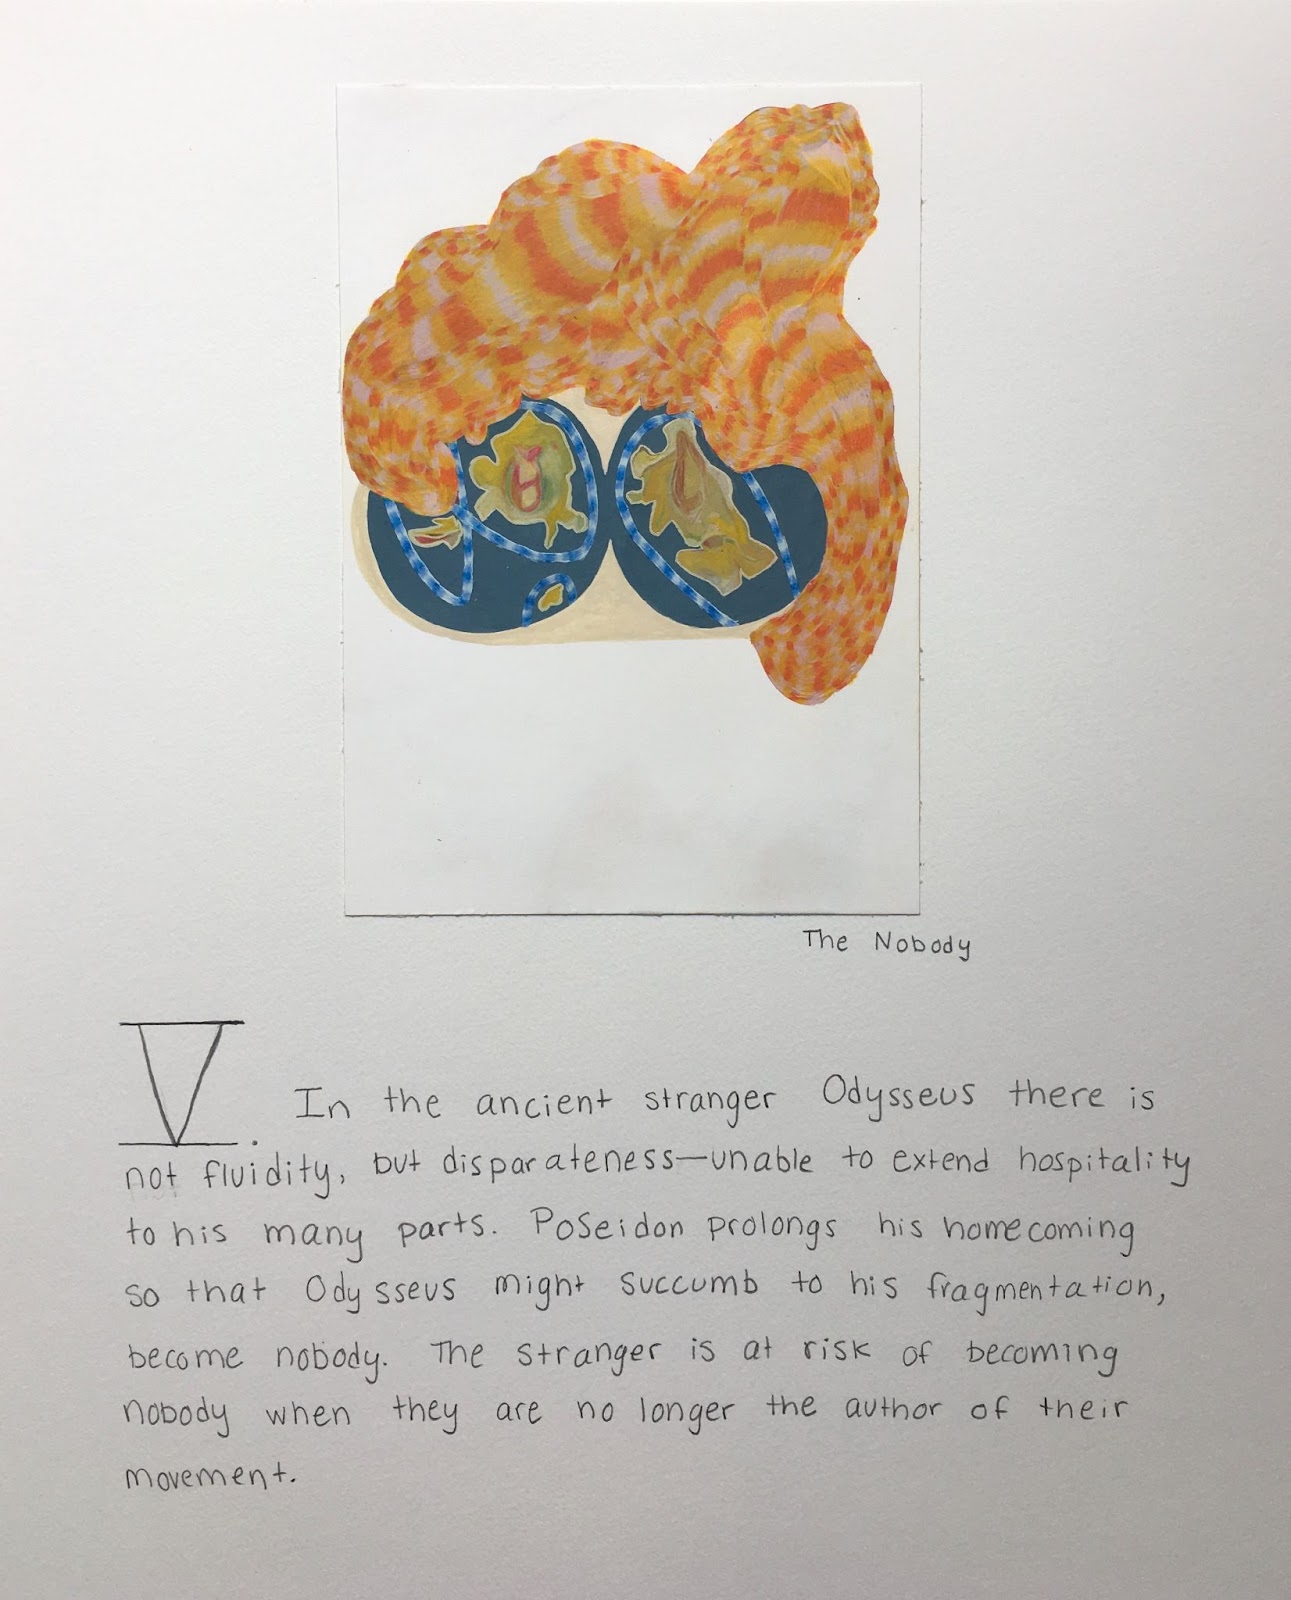 The Nobody
V. In the ancient stranger Odysseus there is
not fluidity, but disparateness—unable to extend hospitality
to his many parts. Poseidon prolongs his homecoming
so that Odysseus might succumb to his fragmentation,
become nobody. The stranger is at risk of becoming
nobody when they are no longer the author of their
movement.